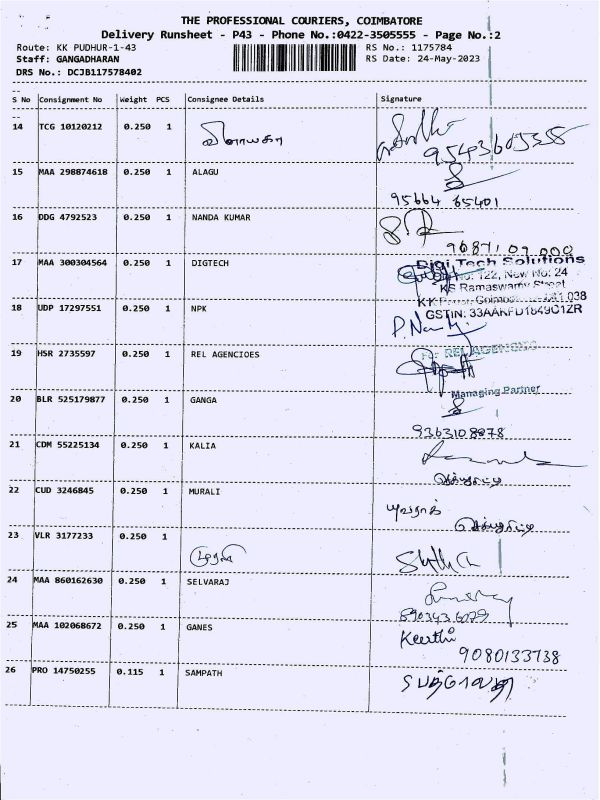 THE PROFESSIONAL COURIERS, COIMBATORE
Delivery Runsheet - P43 - Phone No.:0422-3505555 - Page No.:2
Route: KK PUDHUR-1-43 RS No.: 1175784
Staff: GANGADHARAN RS Date: 24-May-2023
DRS No.: DCJB117578402
S No Consignment No Weight PCS Consignee Details Signature
14 TCG 10120212 0.250 1
15 MAA 298874618 0.250 1 ALAGU
95664 65401
16 DDG 4792523 0.250 1 NANDA KUMAR
17 MAA 300304564 0.250 1 DIGTECH
Digi Tech Solutions
122, New No: 24
KS Ramaswamy Street
18 UDP 17297551 0.250 1 NPK
19 HSR 2735597 0.250 1 REL AGENCIOES
For REL AGENCIES
Managing Partner
20 BLR 525179877 0.250 1 GANGA
9363108978
21 CDM 55225134 0.250 1 KALIA
22 CUD 3246845 0.250 1 MURALI
23 VLR 3177233 0.250 1
முரளி
24 MAA 860162630 0.250 1 SELVARAJ
25 MAA 102068672 0.250 1 GANES Keerthi
9080133738
26 PRO 14750255 0.115 1 SAMPATH